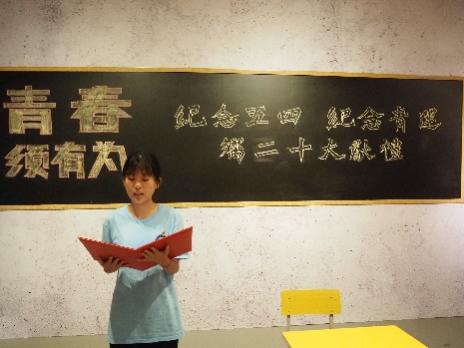 青春
须有为
纪念五四 纪念青
二十大献